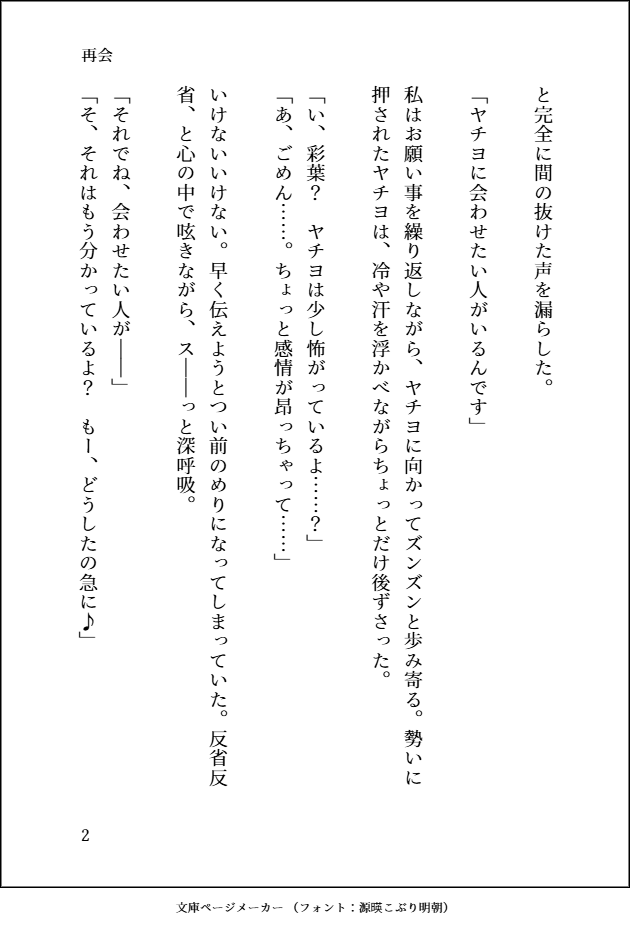 再会
と完全に間の抜けた声を漏らした。
「ヤチヨに会わせたい人がいるんです」
私はお願い事を繰り返しながら、ヤチヨに向かってズンズンと歩み寄る。勢いに
押されたヤチヨは、冷や汗を浮かべながらちょっとだけ後ずさった。
「い、彩葉？　ヤチヨは少し怖がっているよ……？」
「あ、ごめん……。ちょっと感情が昂っちゃって……」
いけないいけない。早く伝えようとつい前のめりになってしまっていた。反省反
省、と心の中で呟きながら、ス――っと深呼吸。
「それでね、会わせたい人が――」
「そ、それはもう分かっているよ？　もー、どうしたの急に♪」
2
文庫ページメーカー（フォント：源暎こぶり明朝）